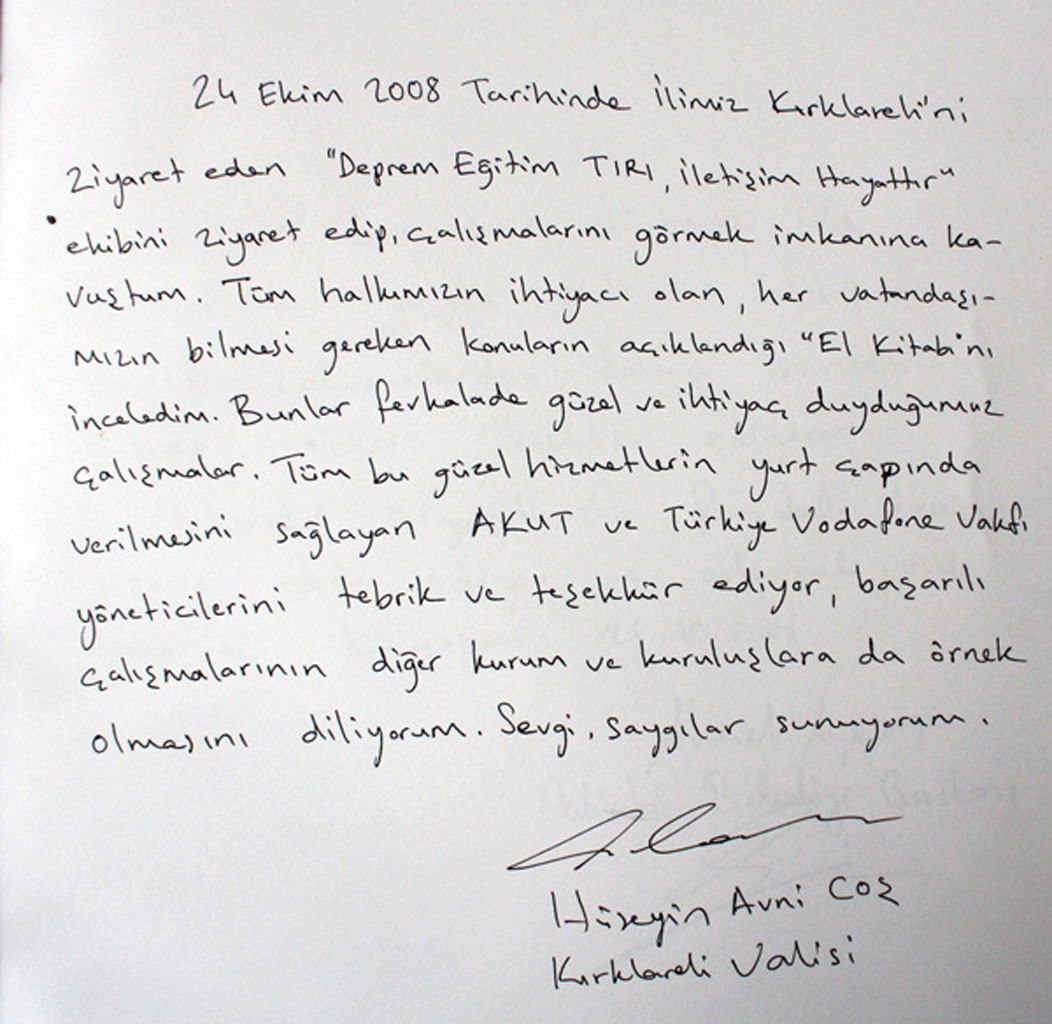 24 Ekim 2008 Tarihinde İlimiz Kırklareli'ni
ziyaret eden "Deprem Eğitim TIRI, iletişim Hayattır"
ekibini ziyaret edip, çalışmalarını görmek imkanına ka-
vuştum. Tüm halkımızın ihtiyacı olan, her vatandaşı-
mızın bilmesi gereken konuların açıklandığı "El Kitabı'nı
inceledim. Bunlar fevkalade güzel ve ihtiyaç duyduğumuz
çalışmalar. Tüm bu güzel hizmetlerin yurt çapında
verilmesini sağlayan AKUT ve Türkiye Vodafone Vakfı
yöneticilerini tebrik ve teşekkür ediyor, başarılı
çalışmalarının diğer kurum ve kuruluşlara da örnek
olmasını diliyorum. Sevgi, saygılar sunuyorum.
Hüseyin Avni COŞ
Kırklareli Valisi